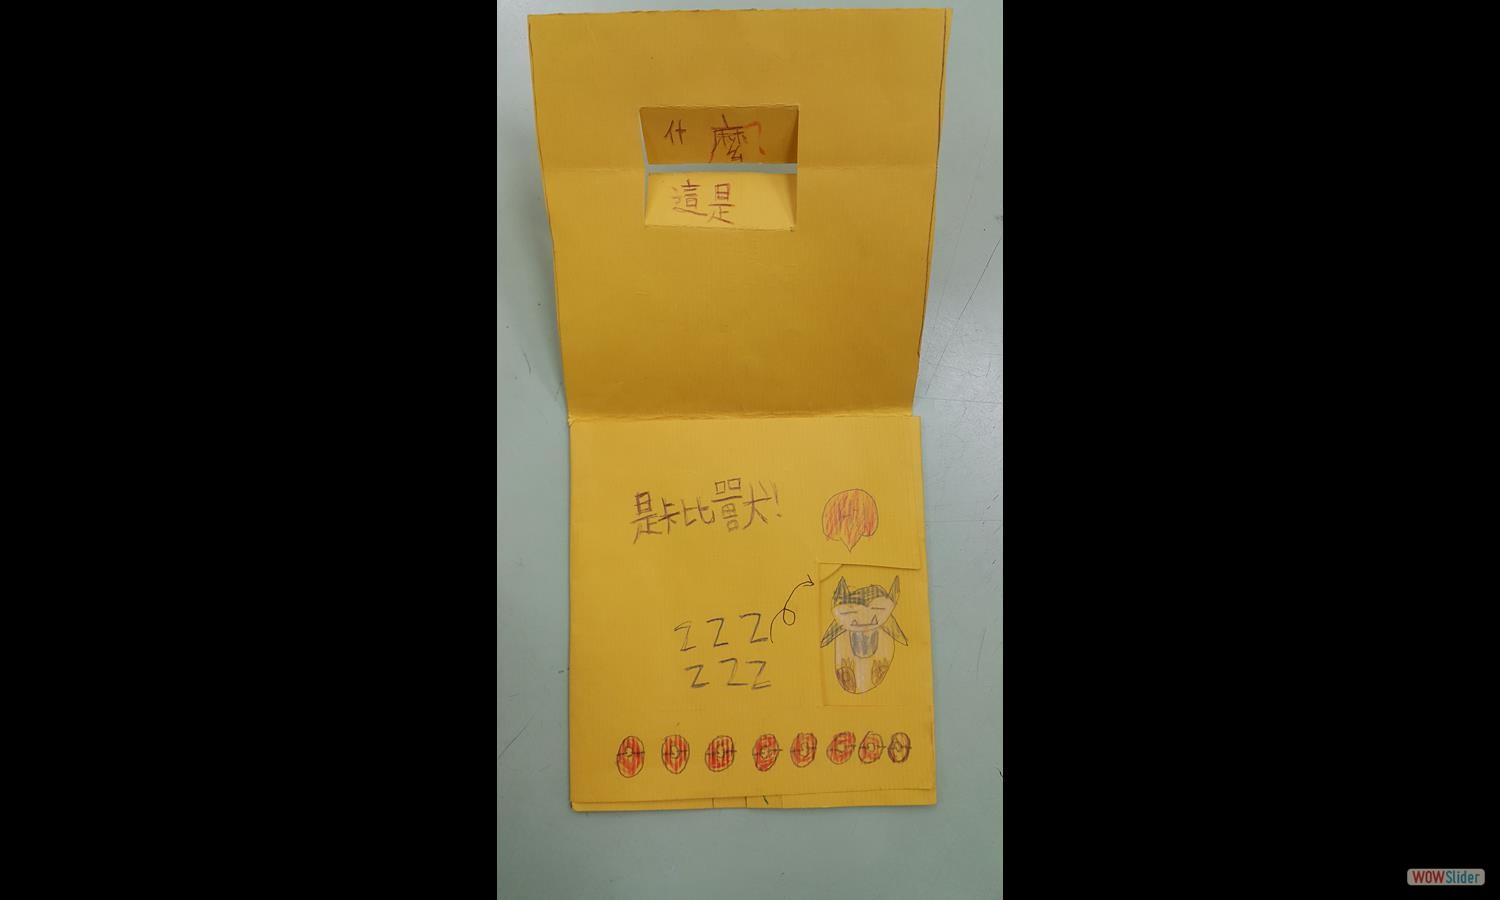 什麼?
這是
是卡比獸!
Z Z Z
Z Z Z
WOWSlider